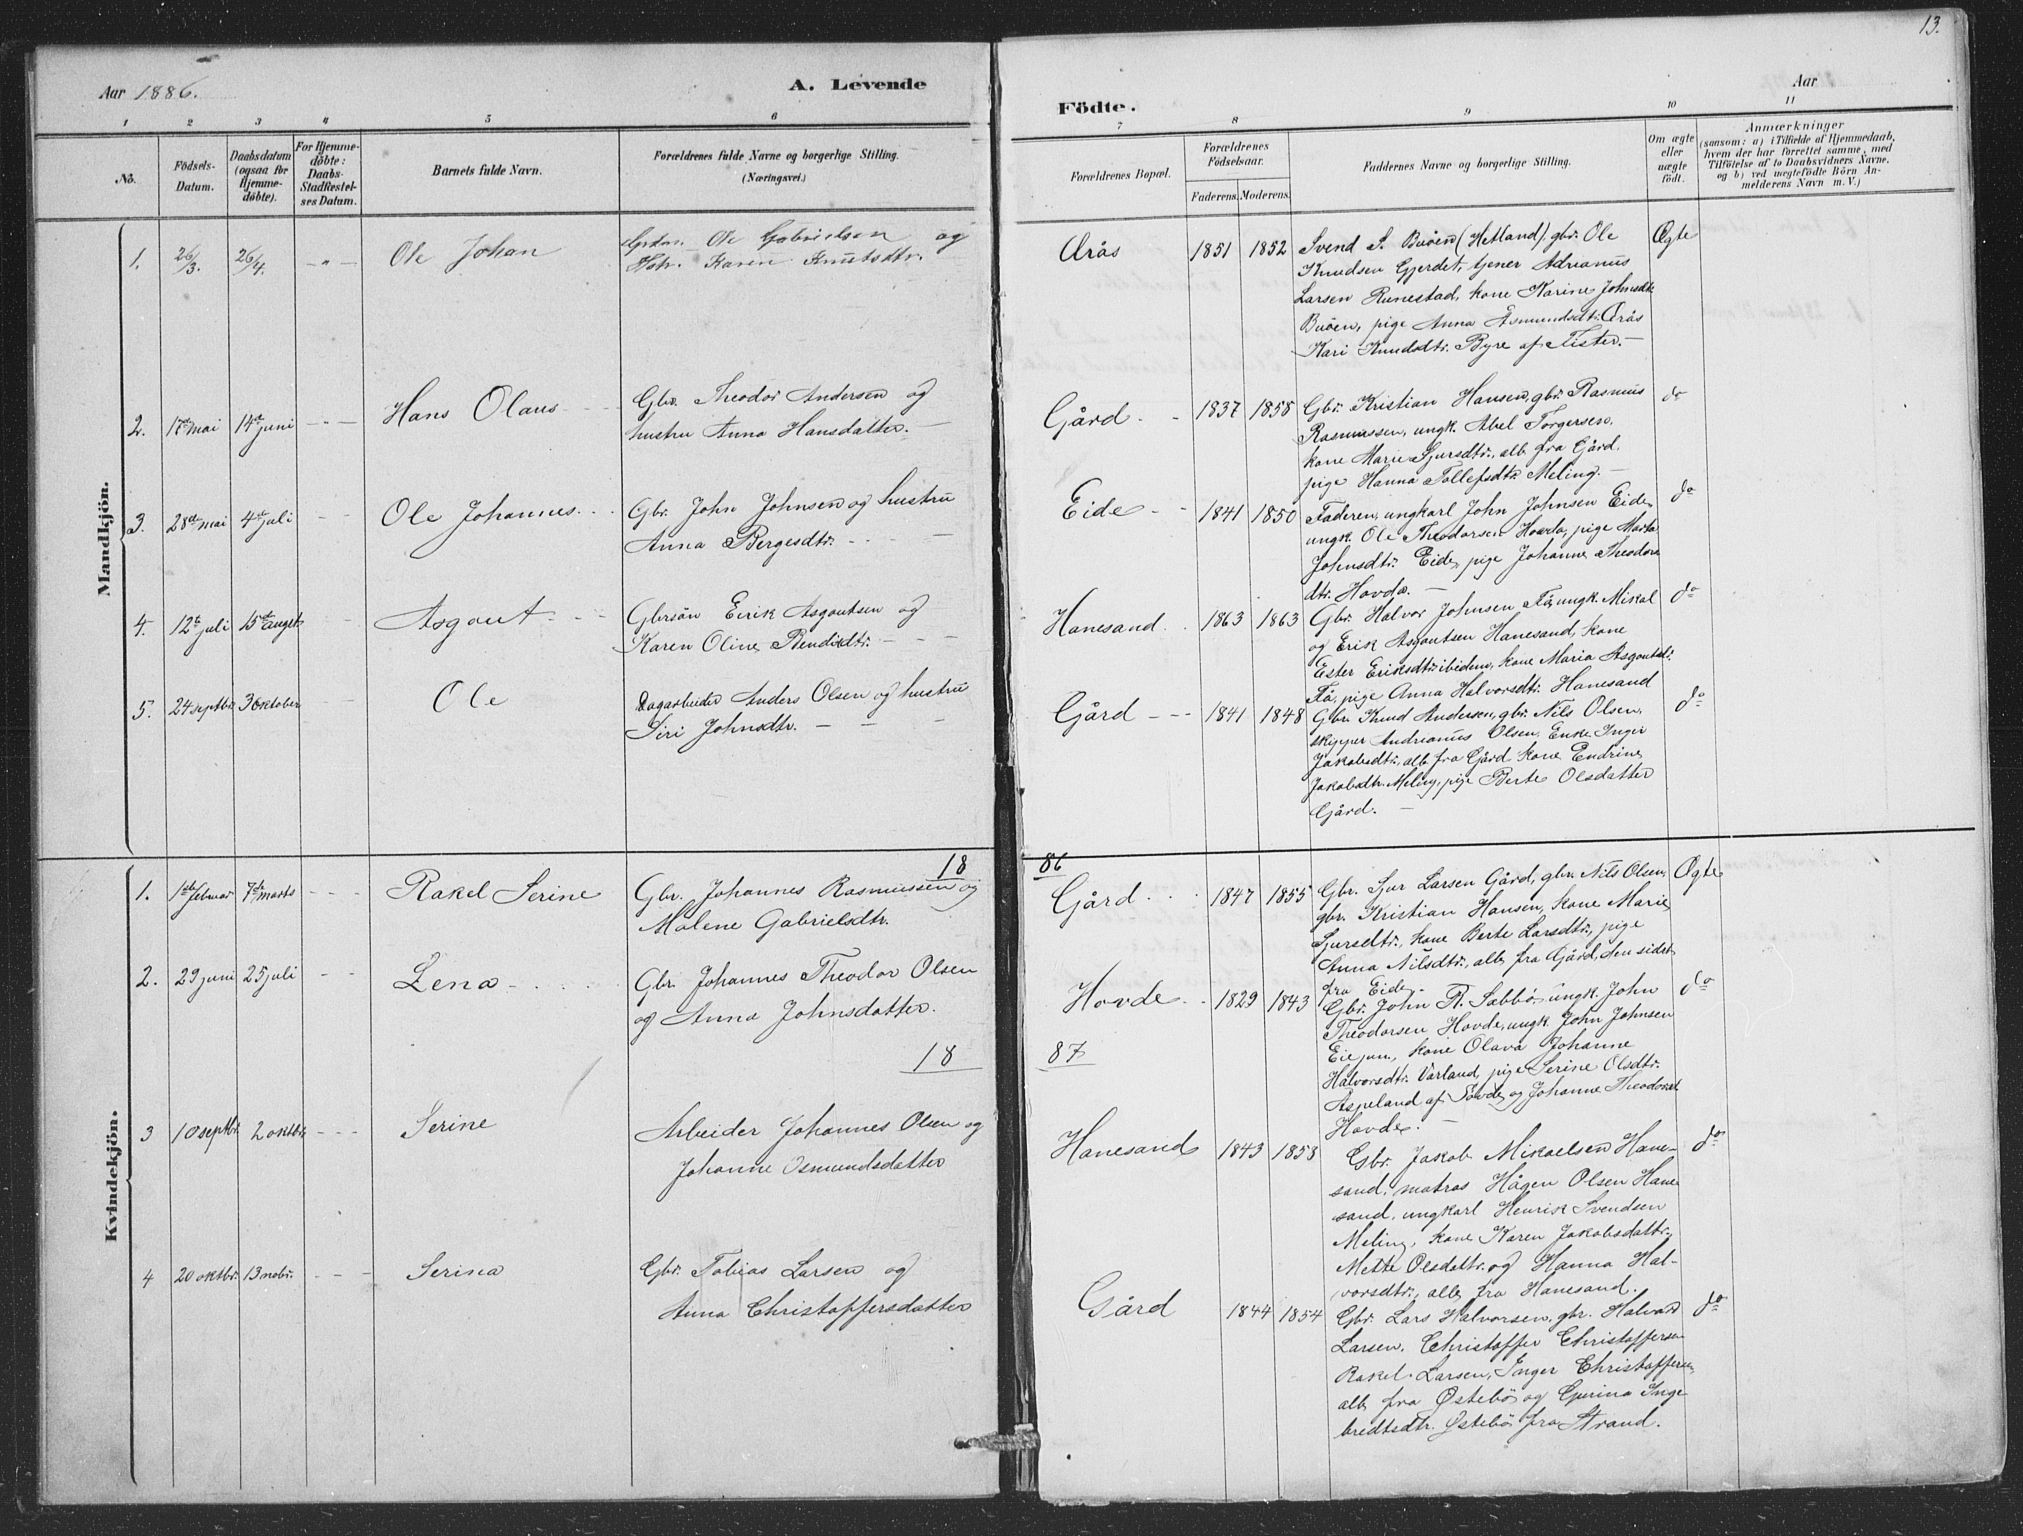 13.
Aar 1886.
A. Levende
Födte.
Aar
1 2 3 4 5 6 7 8 9 10 11
No.
Födsels-Datum.
Daabsdatum (ogsaa for Hjemmedöbte).
For Hjemmedöbte: Daabs-Stadfestelses Datum.
Barnets fulde Navn.
Forældrenes fulde Navne og borgerlige Stilling. (Næringsvei.)
Forældrenes Bopæl.
Forældrenes Födselsaar.
Faderens. Moderens.
Faddernes Navne og borgerlige Stilling.
Om ægte eller uægte födt.
Anmærkninger
(saasom: a) i Tilfælde af Hjemmedaab, hvem der har forrettet samme, med Tilföielse af to Daabsvidners Navne, og b) ved uægtefödte Börn Anmelderens Navn m. V.)
Mandkjön.
1. 26/3. 26/4. - " - Ole Johan
Ole Gabrielsen og
Hstr. Karen Knutsdtr.
Årås 1851 1852
Svend S. Buöen (Hetland), gbr. Ole
Knudsen Gjerdet, tjener Adrianus
Larsen Runestad, kone Karine Johnsdtr.
Buöen, pige Anna Asmundsdtr. Årås
Kari Knudsdtr. Byre af Fister. -
Ægte
2. 17de mai 14de juni Hans Olaus
Gbr. Theodor Andersen og
hustru Anna Hansdatter. -
Gård. 1837 1858
Gbr. Kristian Hansen, gbr. Rasmus
Rasmussen, ungk. Abel Torgersen,
kone Marie Sjursdtr., alle fra Gård,
pige Hanna Tollefsdtr. Meling. -
do
3. 28de mai 4de juli Ole Johannes
Gbr. John Johnsen og hustru
Anna Bergesdtr.
Eide 1841 1850
Faderen, ungkarl John Johnsen Eide,
ungk. Ole Theodorsen Hovda, pige Marta
Johnsdtr. Eide, pige Johanne Theodors
dtr. Hovda. -
do
4. 12te juli 15de augst Asgaut
Gbrsön Eirik Asgautsen og
Karen Oline Bendixdtr.
Hanesand 1863 1863
Gbr. Halvor Johnsen Få, ungk. Mikal
og Erik Asgautsen Hanesand, kone
Ester Eriksdtr. ibidem, kone Maria Asgautsd.
Få, pige Anna Halvorsdtr. Hanesand
do
5. 24 septbr 3 oktober Ole
Dagarbeider Anders Olsen og hustru
Siri Johnsdtr.
Gård 1841 1848
Gbr. Knud Andersen, gbr. Nils Olsen,
skipper Andrianus Olsen, Enke Inger
Jakobsdtr., alle fra Gård, kone Endrine
Jakobsdtr. Meling, pige Berte Olsdatter
Gård. -
do
18 86
Kvindekjön.
1. 1ste februar 7de marts Rakel Serine
Gbr. Johannes Rasmussen og
Malene Gabrielsdtr.
Gård 1847 1855
Gbr. Sjur Larsen Gård, gbr. Nils Olsen,
gbr. Kristian Hansen, kone Marie
Sjursdtr., kone Berte Larsdtr., pige
Anna Nilsdtr., alle fra Gård, den sidste
fra Eide. -
Ægte
2. 29 juni 25 juli Lena
Gbr. Johannes Theodor Olsen
og Anna Johnsdatter.
Hovde 1829 1843
Gbr. John R. Sabbö, ungk. John
Theodorsen Hovde, ungk. John Johnsen
Eie jun., kone Olava Johanne
Halvorsdtr. Varland, pige Serine Olsdtr.
Aspeland af Sövde og Johanne Theodorsd.
Hovde. -
do
18 87
3 10 septbr. 2 oktbr. Serine
Arbeider Johannes Olsen og
Johanne Osmundsdatter
Hanesand 1843 1853
Gbr. Jakob Mikaelsen Hane-
sand, matros Hågen Olsen Hane
sand, ungkarl Henrik Svendsen
Meling, kone Karen Jakobsdattr.,
Mette Olsdattr. og Hanna Hal-
vorsdtr., alle fra Hanesand.
do
4 20 oktbr. 13 nobr. Serina
Gbr. Tobias Larsen og
Anna Christoffersdatter
Gård 1844 1854
Gbr. Lars Halvorsen, gbr. Halvard
Larsen, Christoffer Christoffersen
Rakel Larsen, Inger Christoffersen,
alle fra Østebö og Gurina Inge
bredtsdtr. Østebö fra Strand.
do